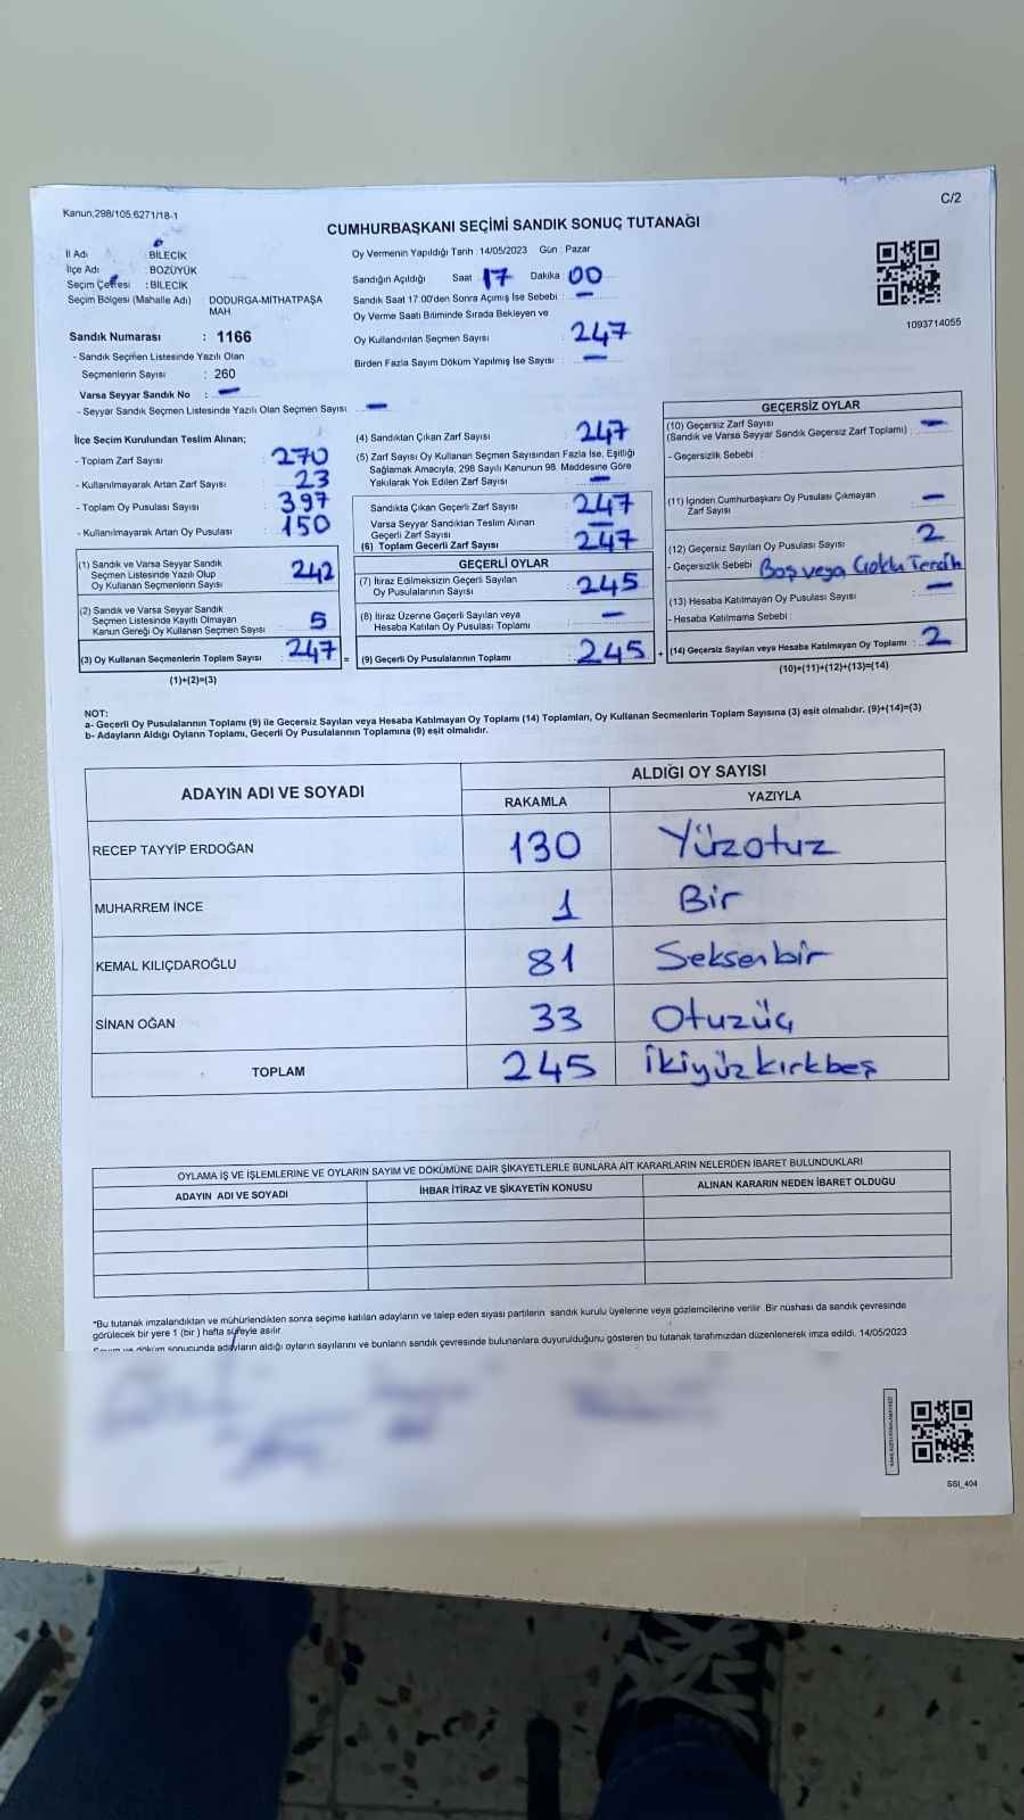 Kanun:298/105.6271/18-1
C/2
CUMHURBAŞKANI SEÇİMİ SANDIK SONUÇ TUTANAĞI
İl Adı : BİLECİK
İlçe Adı : BOZÜYÜK
Seçim Çevresi : BİLECİK
Seçim Bölgesi (Mahalle Adı) : DODURGA-MİTHATPAŞA MAH
Sandık Numarası : 1166
- Sandık Seçmen Listesinde Yazılı Olan
Seçmenlerin Sayısı : 260
Varsa Seyyar Sandık No : -
- Seyyar Sandık Seçmen Listesinde Yazılı Olan Seçmen Sayısı -
Oy Vermenin Yapıldığı Tarih :14/05/2023 Gün : Pazar
Sandığın Açıldığı Saat 17 Dakika : 00
Sandık Saat 17:00'den Sonra Açımış İse Sebebi : -
Oy Verme Saati Bitiminde Sırada Bekleyen ve
Oy Kullandırılan Seçmen Sayısı : 247
Birden Fazla Sayım Döküm Yapılmış İse Sayısı : -
1093714055
İlçe Seçim Kurulundan Teslim Alınan;
- Toplam Zarf Sayısı : 270
- Kullanılmayarak Artan Zarf Sayısı : 23
- Toplam Oy Pusulası Sayısı : 397
- Kullanılmayarak Artan Oy Pusulası : 150
(1) Sandık ve Varsa Seyyar Sandık
Seçmen Listesinde Yazılı Olup
Oy Kullanan Seçmenlerin Sayısı : 242
(2) Sandık ve Varsa Seyyar Sandık
Seçmen Listesinde Kayıtlı Olmayan
Kanun Gereği Oy Kullanan Seçmen Sayısı : 5
(3) Oy Kullanan Seçmenlerin Toplam Sayısı : 247
(1)+(2)=(3)
(4) Sandıktan Çıkan Zarf Sayısı : 247
(5) Zarf Sayısı Oy Kullanan Seçmen Sayısından Fazla İse, Eşitliği
Sağlamak Amacıyla, 298 Sayılı Kanunun 98. Maddesine Göre
Yakılarak Yok Edilen Zarf Sayısı : -
Sandıkta Çıkan Geçerli Zarf Sayısı : 247
Varsa Seyyar Sandıktan Teslim Alınan
Geçerli Zarf Sayısı : -
(6) Toplam Geçerli Zarf Sayısı : 247
GEÇERLİ OYLAR
(7) İtiraz Edilmeksizin Geçerli Sayılan
Oy Pusulalarının Sayısı : 245
(8) İtiraz Üzerine Geçerli Sayılan veya
Hesaba Katılan Oy Pusulası Toplamı : -
= (9) Geçerli Oy Pusulalarının Toplamı : 245
GEÇERSİZ OYLAR
(10) Geçersiz Zarf Sayısı
(Sandık ve Varsa Seyyar Sandık Geçersiz Zarf Toplamı) : -
- Geçersizlik Sebebi :
(11) İçinden Cumhurbaşkanı Oy Pusulası Çıkmayan
Zarf Sayısı : -
(12) Geçersiz Sayılan Oy Pusulası Sayısı : 2
- Geçersizlik Sebebi : Boş veya Çoklu Tercih
(13) Hesaba Katılmayan Oy Pusulası Sayısı : -
- Hesaba Katılmama Sebebi :
+ (14) Geçersiz Sayılan veya Hesaba Katılmayan Oy Toplamı : 2
(10)+(11)+(12)+(13)=(14)
NOT:
a- Geçerli Oy Pusulalarının Toplamı (9) ile Geçersiz Sayılan veya Hesaba Katılmayan Oy Toplamı (14) Toplamları, Oy Kullanan Seçmenlerin Toplam Sayısına (3) eşit olmalıdır. (9)+(14)=(3)
b- Adayların Aldığı Oyların Toplamı, Geçerli Oy Pusulalarının Toplamına (9) eşit olmalıdır.
ADAYIN ADI VE SOYADI ALDIĞI OY SAYISI
RAKAMLA YAZIYLA
RECEP TAYYİP ERDOĞAN 130 Yüzotuz
MUHARREM İNCE 1 Bir
KEMAL KILIÇDAROĞLU 81 Seksenbir
SİNAN OĞAN 33 Otuzüç
TOPLAM 245 İkiyüzkırkbeş
OYLAMA İŞ VE İŞLEMLERİNE VE OYLARIN SAYIM VE DÖKÜMÜNE DAİR ŞİKAYETLERLE BUNLARA AİT KARARLARIN NELERDEN İBARET BULUNDUKLARI
ADAYIN ADI VE SOYADI İHBAR İTİRAZ VE ŞİKAYETİN KONUSU ALINAN KARARIN NEDEN İBARET OLDUĞU
*Bu tutanak imzalandıktan ve mühürlendikten sonra seçime katılan adayların ve talep eden siyasi partilerin sandık kurulu üyelerine veya gözlemcilerine verilir. Bir nüshası da sandık çevresinde
görülecek bir yere 1 (bir ) hafta süreyle asılır
Sayım ve döküm sonucunda adayların aldığı oyların sayılarını ve bunların sandık çevresinde bulunanlara duyurulduğunu gösteren bu tutanak tarafımızdan düzenlenerek imza edildi. 14/05/2023
SSI_404